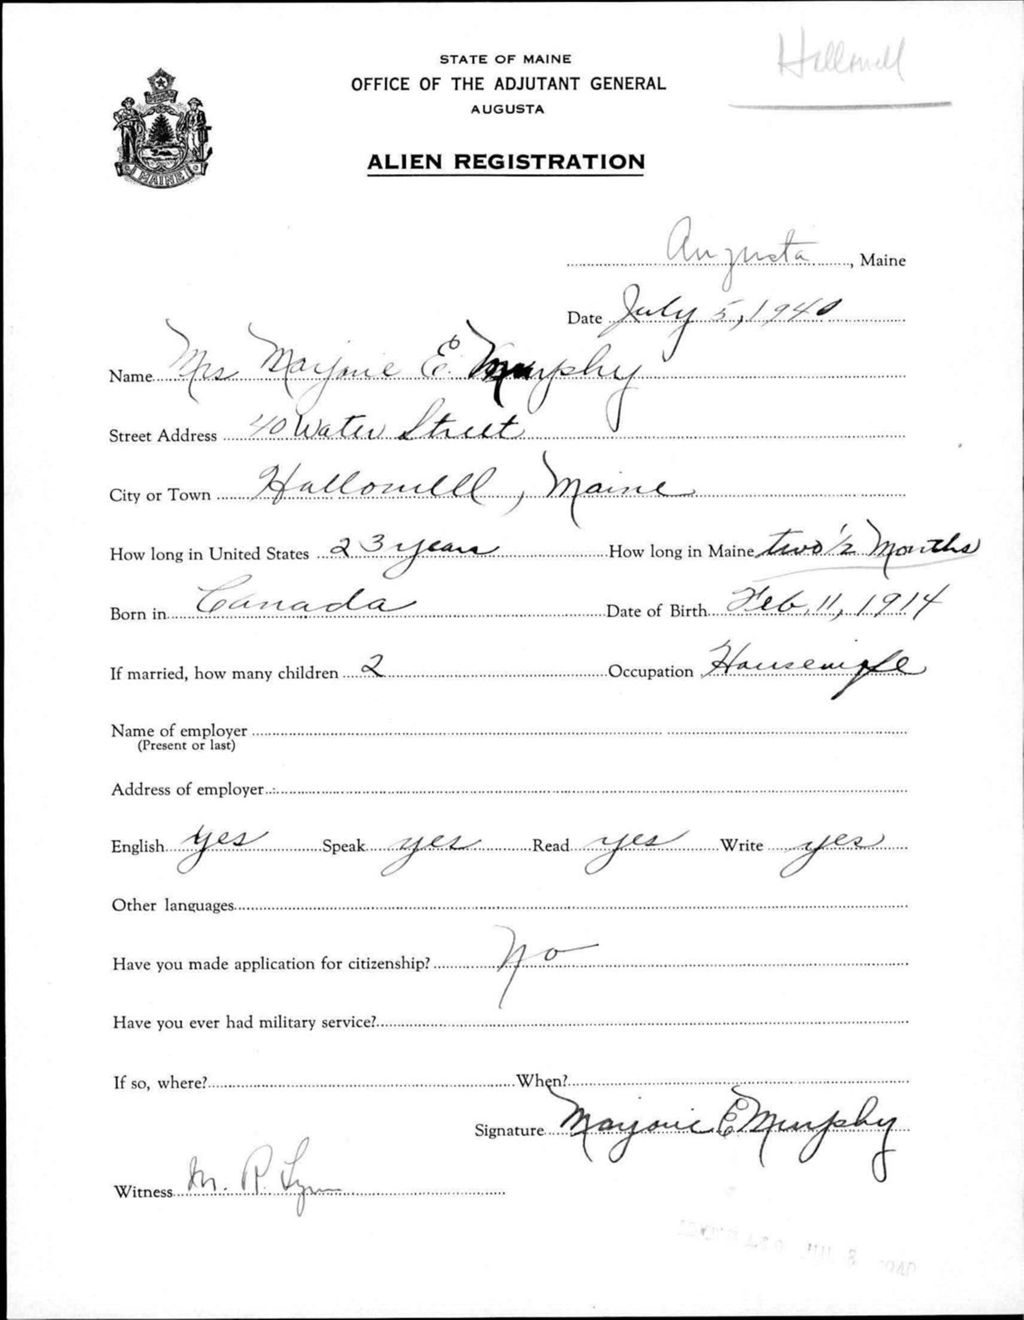 Hallowell
STATE OF MAINE
OFFICE OF THE ADJUTANT GENERAL
AUGUSTA
MAINE
ALIEN REGISTRATION
Augusta, Maine
Date July 5, 1940
Name Mrs Marjorie E. Murphy
Street Address 40 Water Street
City or Town Hallowell, Maine
How long in United States 23 years How long in Maine two 1/2 Months
Born in Canada Date of Birth Feb. 11, 1914
If married, how many children 2 Occupation Housewife
Name of employer
(Present or last)
Address of employer
English yes Speak yes Read yes Write yes
Other languages
Have you made application for citizenship? No
Have you ever had military service?
If so, where? When?
Signature Marjorie E Murphy
Witness M. R. Lynn